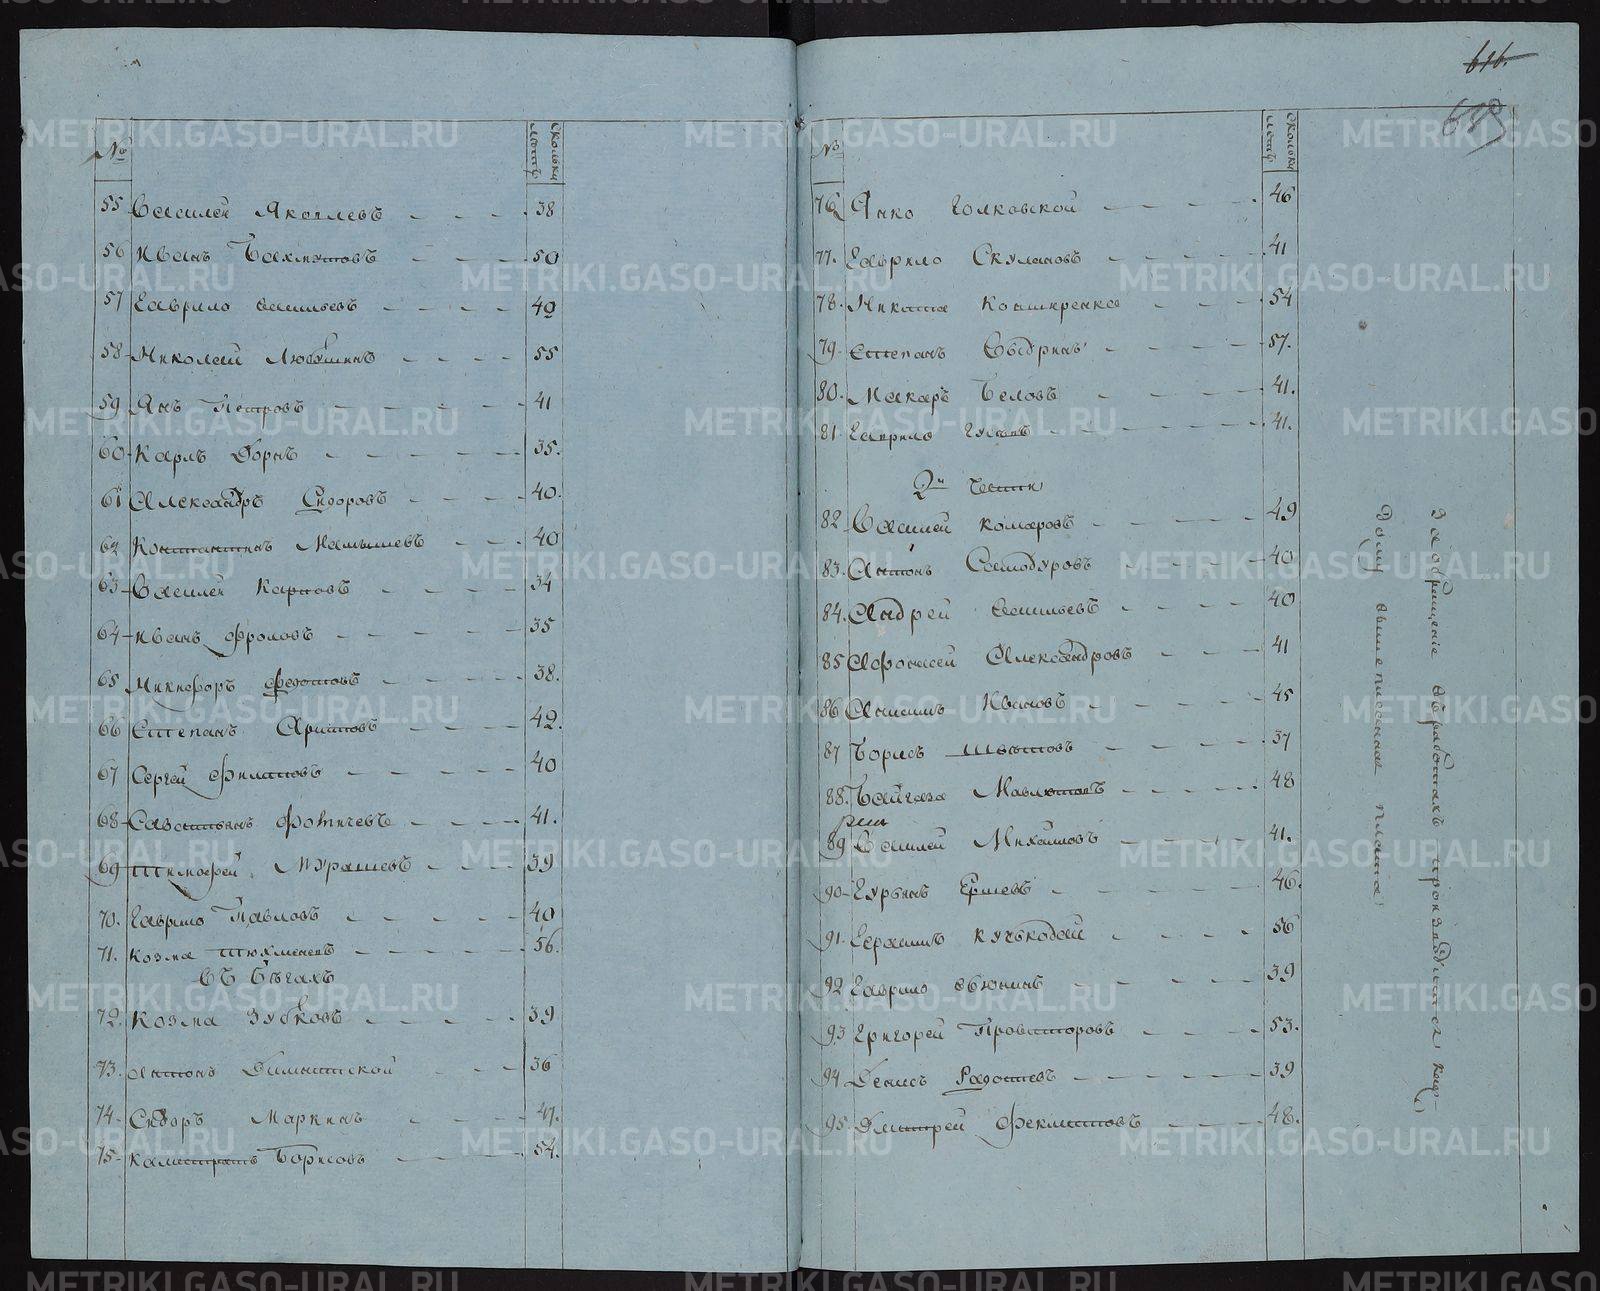 №
сколько летъ
55 Василей Яковлевъ 38
56 Иванъ Бахметовъ 50
57 Гаврило Васильевъ 40
58 Николай Любушинъ 55
59 Янъ Петровъ 41
60 Карлъ Дорнъ 35.
61 Александръ Сидоровъ 40.
62 Константинъ Малышевъ 40
63 Василей Карповъ 34
64 Иванъ Фроловъ 35
65 Никифоръ Федотовъ 38.
66 Степанъ 42.
67 Сергей Филиповъ 40
68 Савастьянъ Фотичевъ 41.
69 Тимофей Мурашевъ 39
70. Гаврило Павловъ 40
71. Козма Тюхменевъ 56.
въ бѣгахъ
72. Козма Зубковъ 39
73. Антонъ 36
74. Сидоръ Маркинъ 47.
75 Калистратъ Борисовъ 54.
616.
689
№
сколько летъ
76 Янко Голковской 46
77. Гаврило Скулановъ 41
78. Никита 54
79. Степанъ Выдринъ 57.
80. Макаръ Беловъ 41.
81. Гаврило Гусевъ 41.
2й части
82 Василей Комаровъ 49
83. Антонъ Самодуровъ 40
84. Андрей Васильевъ 40
85 Афонасей Александровъ 41
86 Анисимъ Ивановъ 45
87 Борисъ 37
88. Байгаза Мавлютовъ 48
89 Василей Михайловъ 41.
90 Гурьянъ Ершевъ 46.
91. Герасимъ 56
92 Гаврило 39
93 Григорей Провиторовъ 53.
94 Денисъ 39
95. Дмитрей Феклистовъ 48.
За обращеніе въ работахъ производится каж-
дому вышеписанная плата